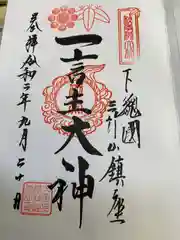 下総國
三竹山鎮座
一言主大神
奉拝 令和二年九月二十日